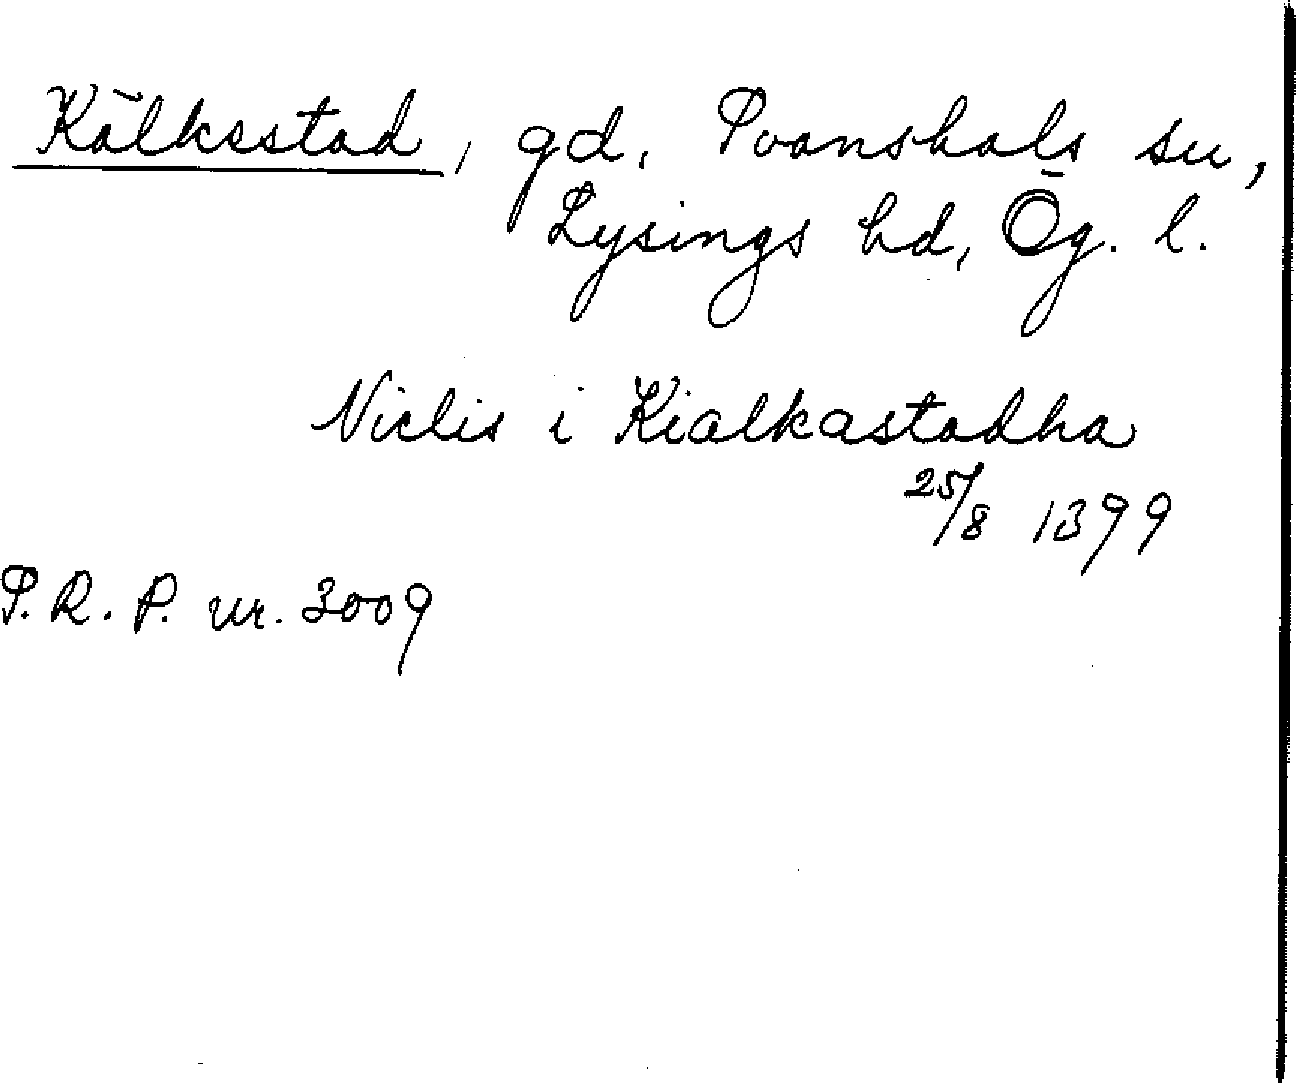 Kälkestad, gd. Svanshals sn,
Lysings hd, Ög. l.
Niclis i Kialkastadha
25/8 1399
P.R.P. nr. 3009